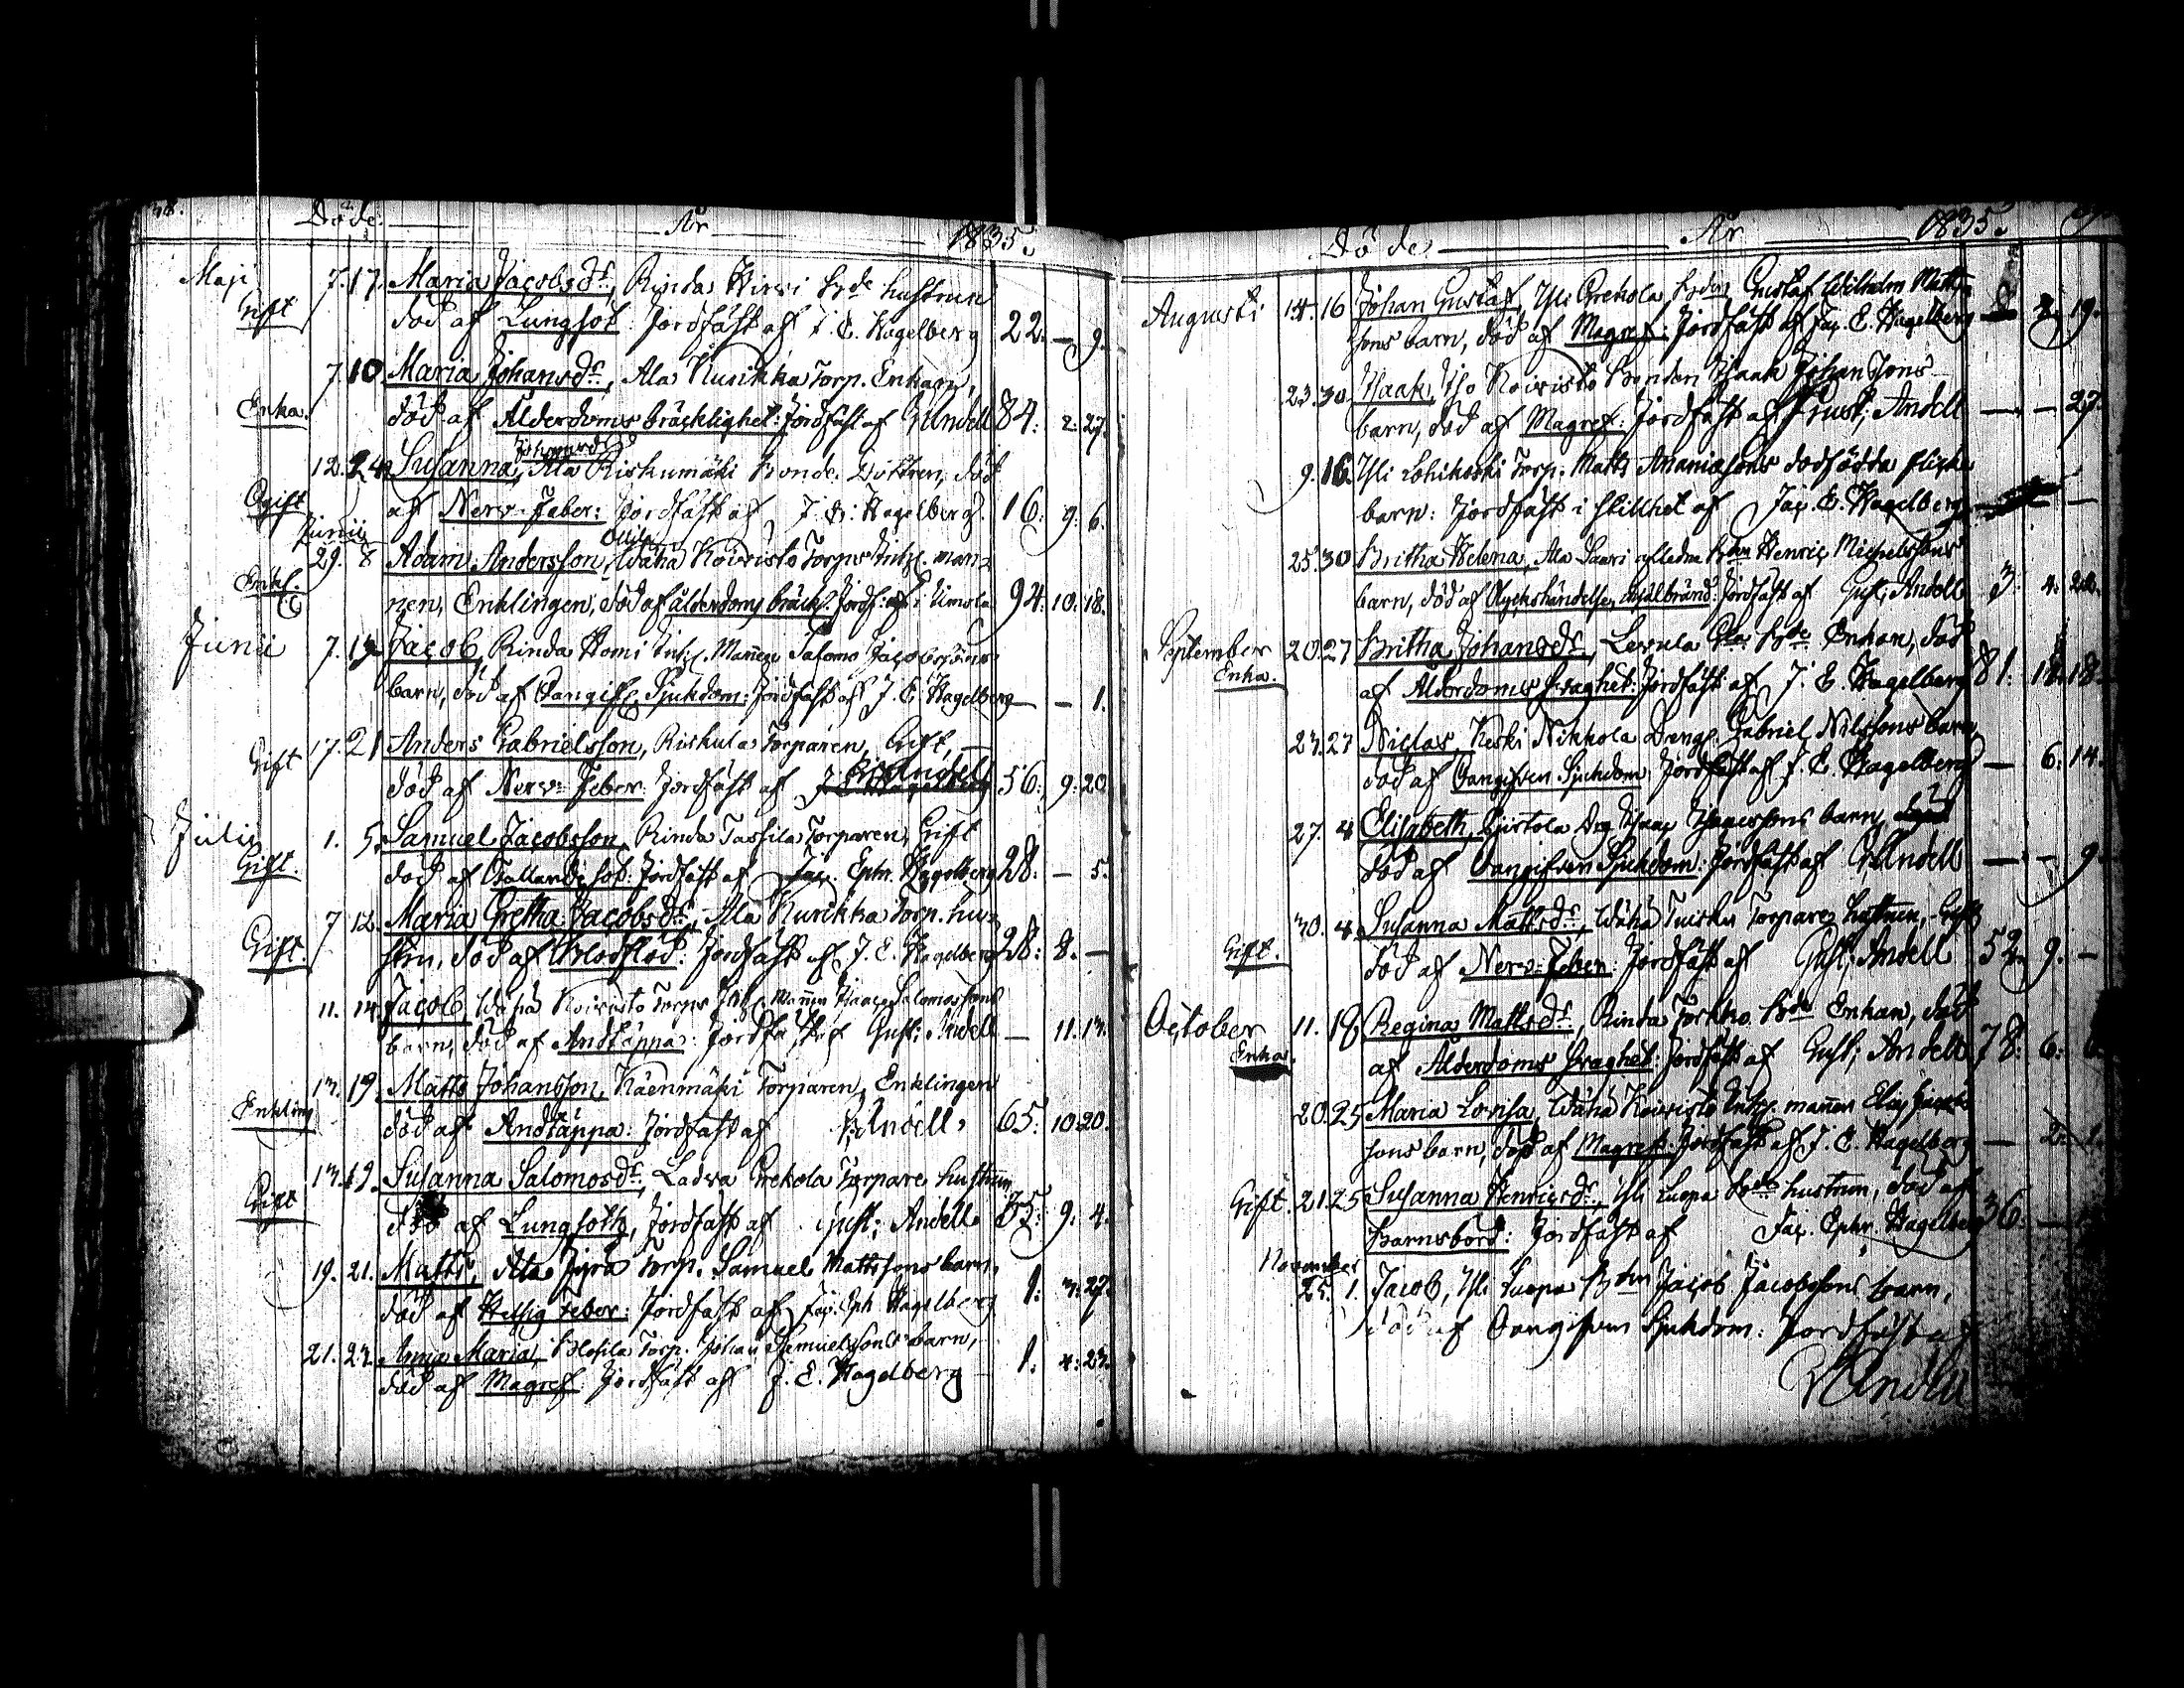 Döde. År 1835.
Maji 7. 17. Maria Jacobsdr, Rinda Hirvi Bde hustrun
Gift död af Lungsot: Jordfäst af J. E. Hagelberg 22. — 9.
7. 10. Maria Johansdr, Ala Kurikka Torp. Enkan,
Enka. död af Ålderdoms bräcklighet: Jordfäst af GAndell 84: 2: 27.
Johansdr
12. 24. Susanna, Ala Riskumäki Bonde Dottren, död
Ogift af Nerv-Feber: Jordfäst af J. E. Hagelberg. 16: 9: 6.
Junii
29. 8 Adam Andersson, Wähä Koivisto Torps Inhs. man-
Enkl. nen, Enklingen, död af ålderdoms bräckl. Jordf: af i 94: 10: 18.
Junii 7. 19 Jacob, Rinda Homi Inhs. Mannen Salomo Jacobssons
barn, död af Oangifv. Sjukdom: Jordfäst af J. E. Hagelberg — — 1.
17. 21 Anders Gabrielsson, Riskula Torparen, Gift,
Andell
Gift död af Nerv-Feber: Jordfäst af J. E. Hagelberg 56: 9: 20
Julii 1. 5. Samuel Jacobsson, Rinda Tassila Torparen, Gift
Gift. död af Fallandesot: Jordfäst af Jac. Ephr. Hagelberg 28: — 5.
7 12. Maria Gretha Jacobsdr, Ala Kurikka Torp. hu-
Gift. strun, död af Blodflod: Jordfäst af J. E. Hagelberg 28: 8. —
11. 14. Jacob, Wähä Koivisto Torps Inhs. Mannen Isaac Salomonssons
barn, död af Andtäppa: Jordfäst af Gust: Andell — 11. 14.
13. 19. Matts Johansson, Käenmäki Torparen, Enklingen
Enkling död af Andtäppa: Jordfäst af GAndell, 65: 10: 20.
13. 19. Susanna Salomosdr, Ladva Grekola Torpare hustrun,
Gift död af Lungsoth, Jordfäst af Gust: Andell 9: 4.
19. 21. Matts, Ala Jyrä Torp. Samuel Mattssons barn,
död af Hetsig feber: Jordfäst af Jac. Eph Hagelberg 1: 3: 27.
21. 23. Anna Maria, Torp. Johan Samuelssons barn,
död af Magref Jordfäst af J. E. Hagelberg 1. 4: 23.
Döde År 1835.
Augusti 14. 16 Johan Gustaf, Yli Grekola Bdm Gustaf Wilhelm Matts-
sons barn, död af Magref: Jordfäst af Jac. E. Hagelberg 19.
23. 30. Isaak, Iso Koivisto Bonden Isaak Johanssons
barn, död af Magref: Jordfäst af Prost: Andell — — 27.
9. 16. Yli Lohikoski Torp. Matts Ananiassons dödfödda flicka
barn: Jordfäst i stillhet af Jac. E. Hagelberg
25. 30 Britha Helena, Ala Lauri afledne Bdm Henric Michelssons
barn, död af Olyckshändelse, Jordfäst af Gust; Andell 3: 4:
September 20. 27 Britha Johansdr, Levula Bde Enkan, död
Enka. af Ålderdoms svaghet: Jordfäst af J. E. Hagelberg 81: 18
23. 27 Niclas, Keski Nikkola Dreng. Gabriel Nilssons barn,
död af Oangifven Sjukdom: Jordfäst af J. E. Hagelberg — 6: 14.
27. 4 Elisabeth, Dr Isaac Isaacssons barn,
död af Oangifven Sjukdom: Jordfäst af GAndell — — 9
30. 4. Susanna Mattsdr, Wähä Tuisku Torpare hustrun, Gift
Gift. död af Nerv-Feber: Jordfäst af Gust; Andell 52. 9. —
October 11. 18 Regina Mattsdr, Rinda Jorkko Bde Enkan, död
Enka. af Ålderdoms svaghet: Jordfäst af Gust; Andell 78: 6:
20. 25 Maria Lovisa, Wähä Koivisto Inhs. mannen Elias Jacobs
sons barn, död af Magref: Jordfäst af J. E. Hagelberg —
Gift. 21. 25 Susanna Henricsdr, Yli Luopa Bde hustrun, död af
Barnsbörd: Jordfäst af Jac. Ephr. Hagelberg 36. —
November
25. 1. Jacob, Yli Luopa Bdm Jacob Jacobssons barn,
död af Oangifven Sjukdom: Jordfäst af
GAndell